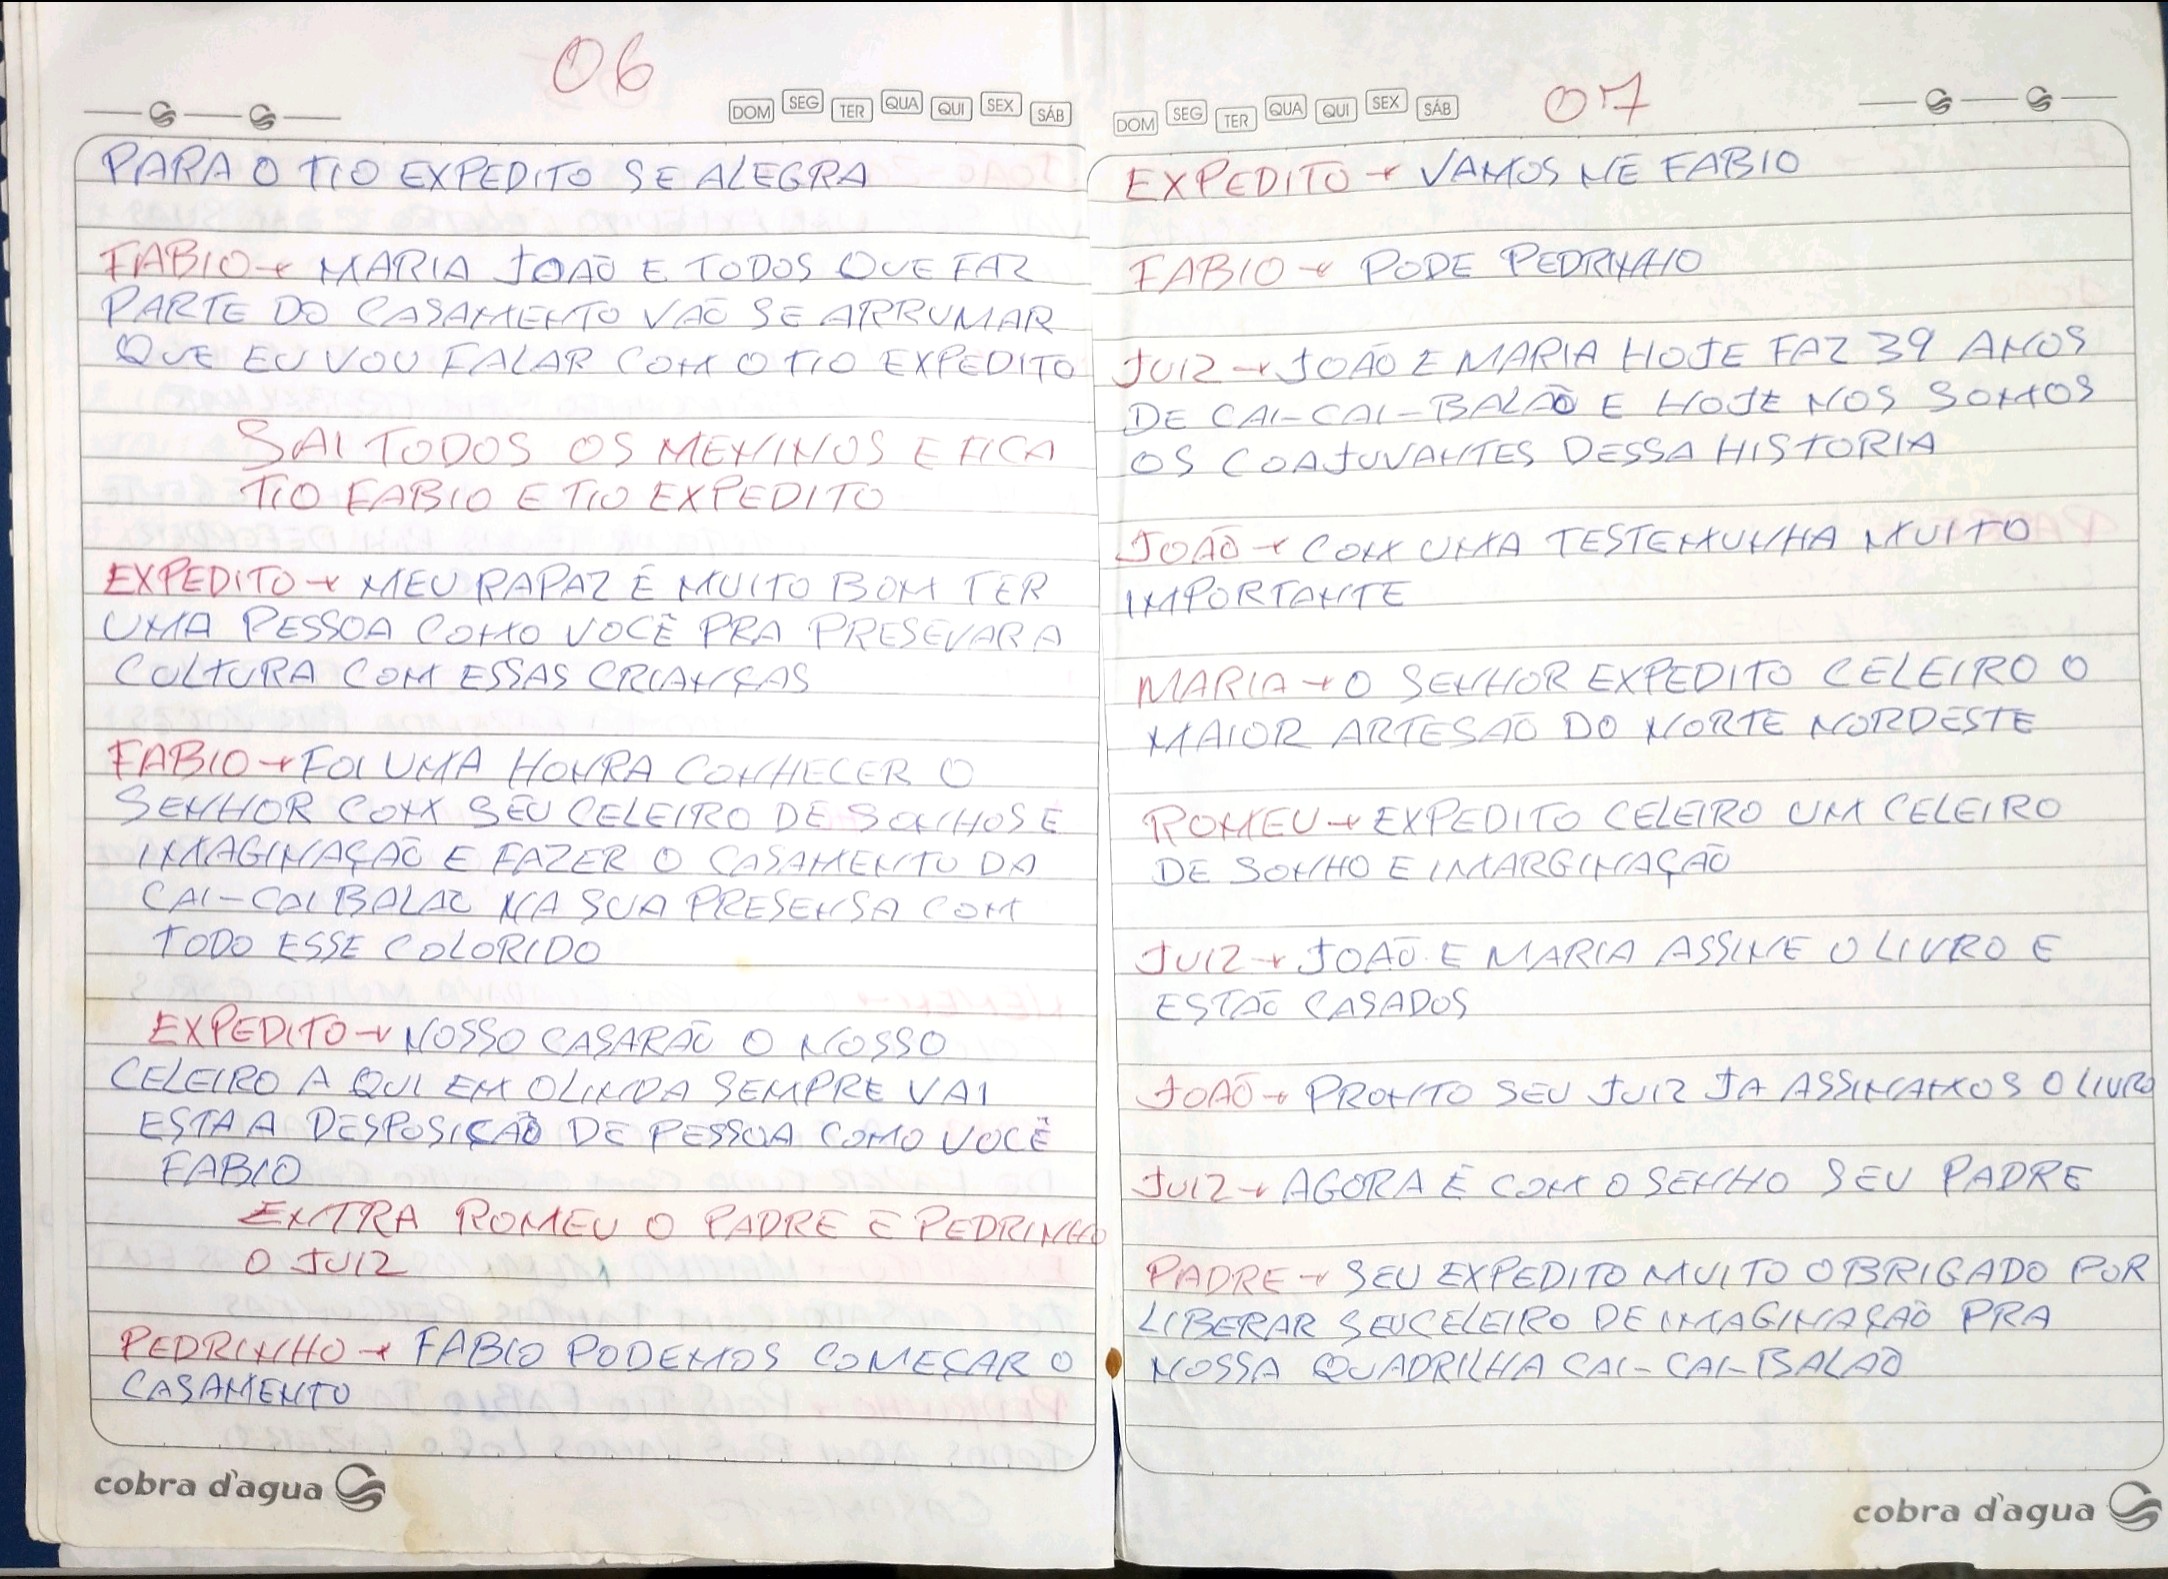 06
DOM SEG TER QUA QUI SEX SÁB
PARA O TIO EXPEDITO SE ALEGRA
FABIO → MARIA JOAÕ E TODOS QUE FAZ
PARTE DO CASAMENTO VAÕ SE ARRUMAR
QUE EU VOU FALAR COM O TIO EXPEDITO
SAI TODOS OS MENINOS E FICA
TIO FABIO E TIO EXPEDITO
EXPEDITO → MEU RAPAZ É MUITO BOM TER
UMA PESSOA COMO VOCÊ PRA PRESEVAR A
CULTURA COM ESSAS CRIANÇAS
FABIO → FOI UMA HONRA CONHECER O
SENHOR COM SEU CELEIRO DE SONHOS E
IMAGINAÇAÕ E FAZER O CASAMENTO DA
CAI-CAI BALAÕ NA SUA PRESENSA COM
TODO ESSE COLORIDO
EXPEDITO → NOSSO CASARAÕ O NOSSO
CELEIRO A QUI EM OLINDA SEMPRE VAI
ESTA A DESPOSIÇAÕ DE PESSOA COMO VOCÊ
FABIO
ENTRA ROMEU O PADRE E PEDRINHO
O JUIZ
PEDRINHO → FABIO PODEMOS COMEÇAR O
CASAMENTO
cobra d'agua
DOM SEG TER QUA QUI SEX SÁB
07
EXPEDITO → VAMOS NE FABIO
FABIO → PODE PEDRINHO
JUIZ → JOÃO E MARIA HOJE FAZ 39 ANOS
DE CAI-CAI-BALAÕ E HOJE NOS SOMOS
OS COAJUVANTES DESSA HISTORIA
JOAÕ → COM UMA TESTEMUNHA MUITO
IMPORTANTE
MARIA → O SENHOR EXPEDITO CELEIRO O
MAIOR ARTESAÕ DO NORTE NORDESTE
ROMEU → EXPEDITO CELEIRO UM CELEIRO
DE SONHO E IMARGINAÇAÕ
JUIZ → JOAÕ E MARIA ASSINE O LIVRO E
ESTAÕ CASADOS
JOAÕ → PRONTO SEU JUIZ JA ASSINAMOS O LIVRO
JUIZ → AGORA É COM O SENHO SEU PADRE
PADRE → SEU EXPEDITO MUITO OBRIGADO POR
LIBERAR SEU CELEIRO DE IMAGINAÇAÕ PRA
NOSSA QUADRILHA CAI-CAI-BALAÕ
cobra d'agua